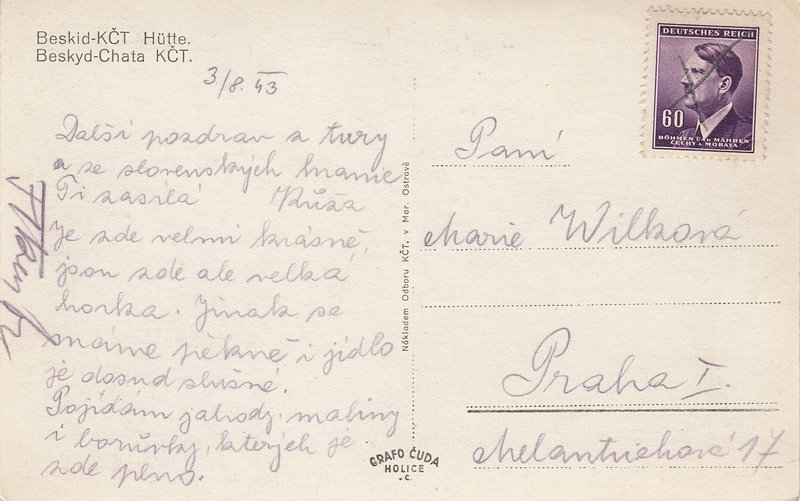 Beskid-KČT Hütte.
Beskyd-Chata KČT.
3/8. 43
Další pozdrav z tury
a ze slovenských hranic
Ti zasílá Růža
Je zde velmi krásně,
jsou zde ale velká
horka. Jinak se
máme pěkně i jídlo
je dosud slušné.
Pojídám jahody, maliny
i borůvky, kterých je
zde plno.
Nákladem Odboru KČT. v Mor. Ostravě
GRAFO ČUDA
HOLICE
v.Č.
DEUTSCHES REICH
60
BÖHMEN U. MÄHREN
ČECHY A MORAVA
Paní
Marie Wilková
Praha I.
Melantrichová 17